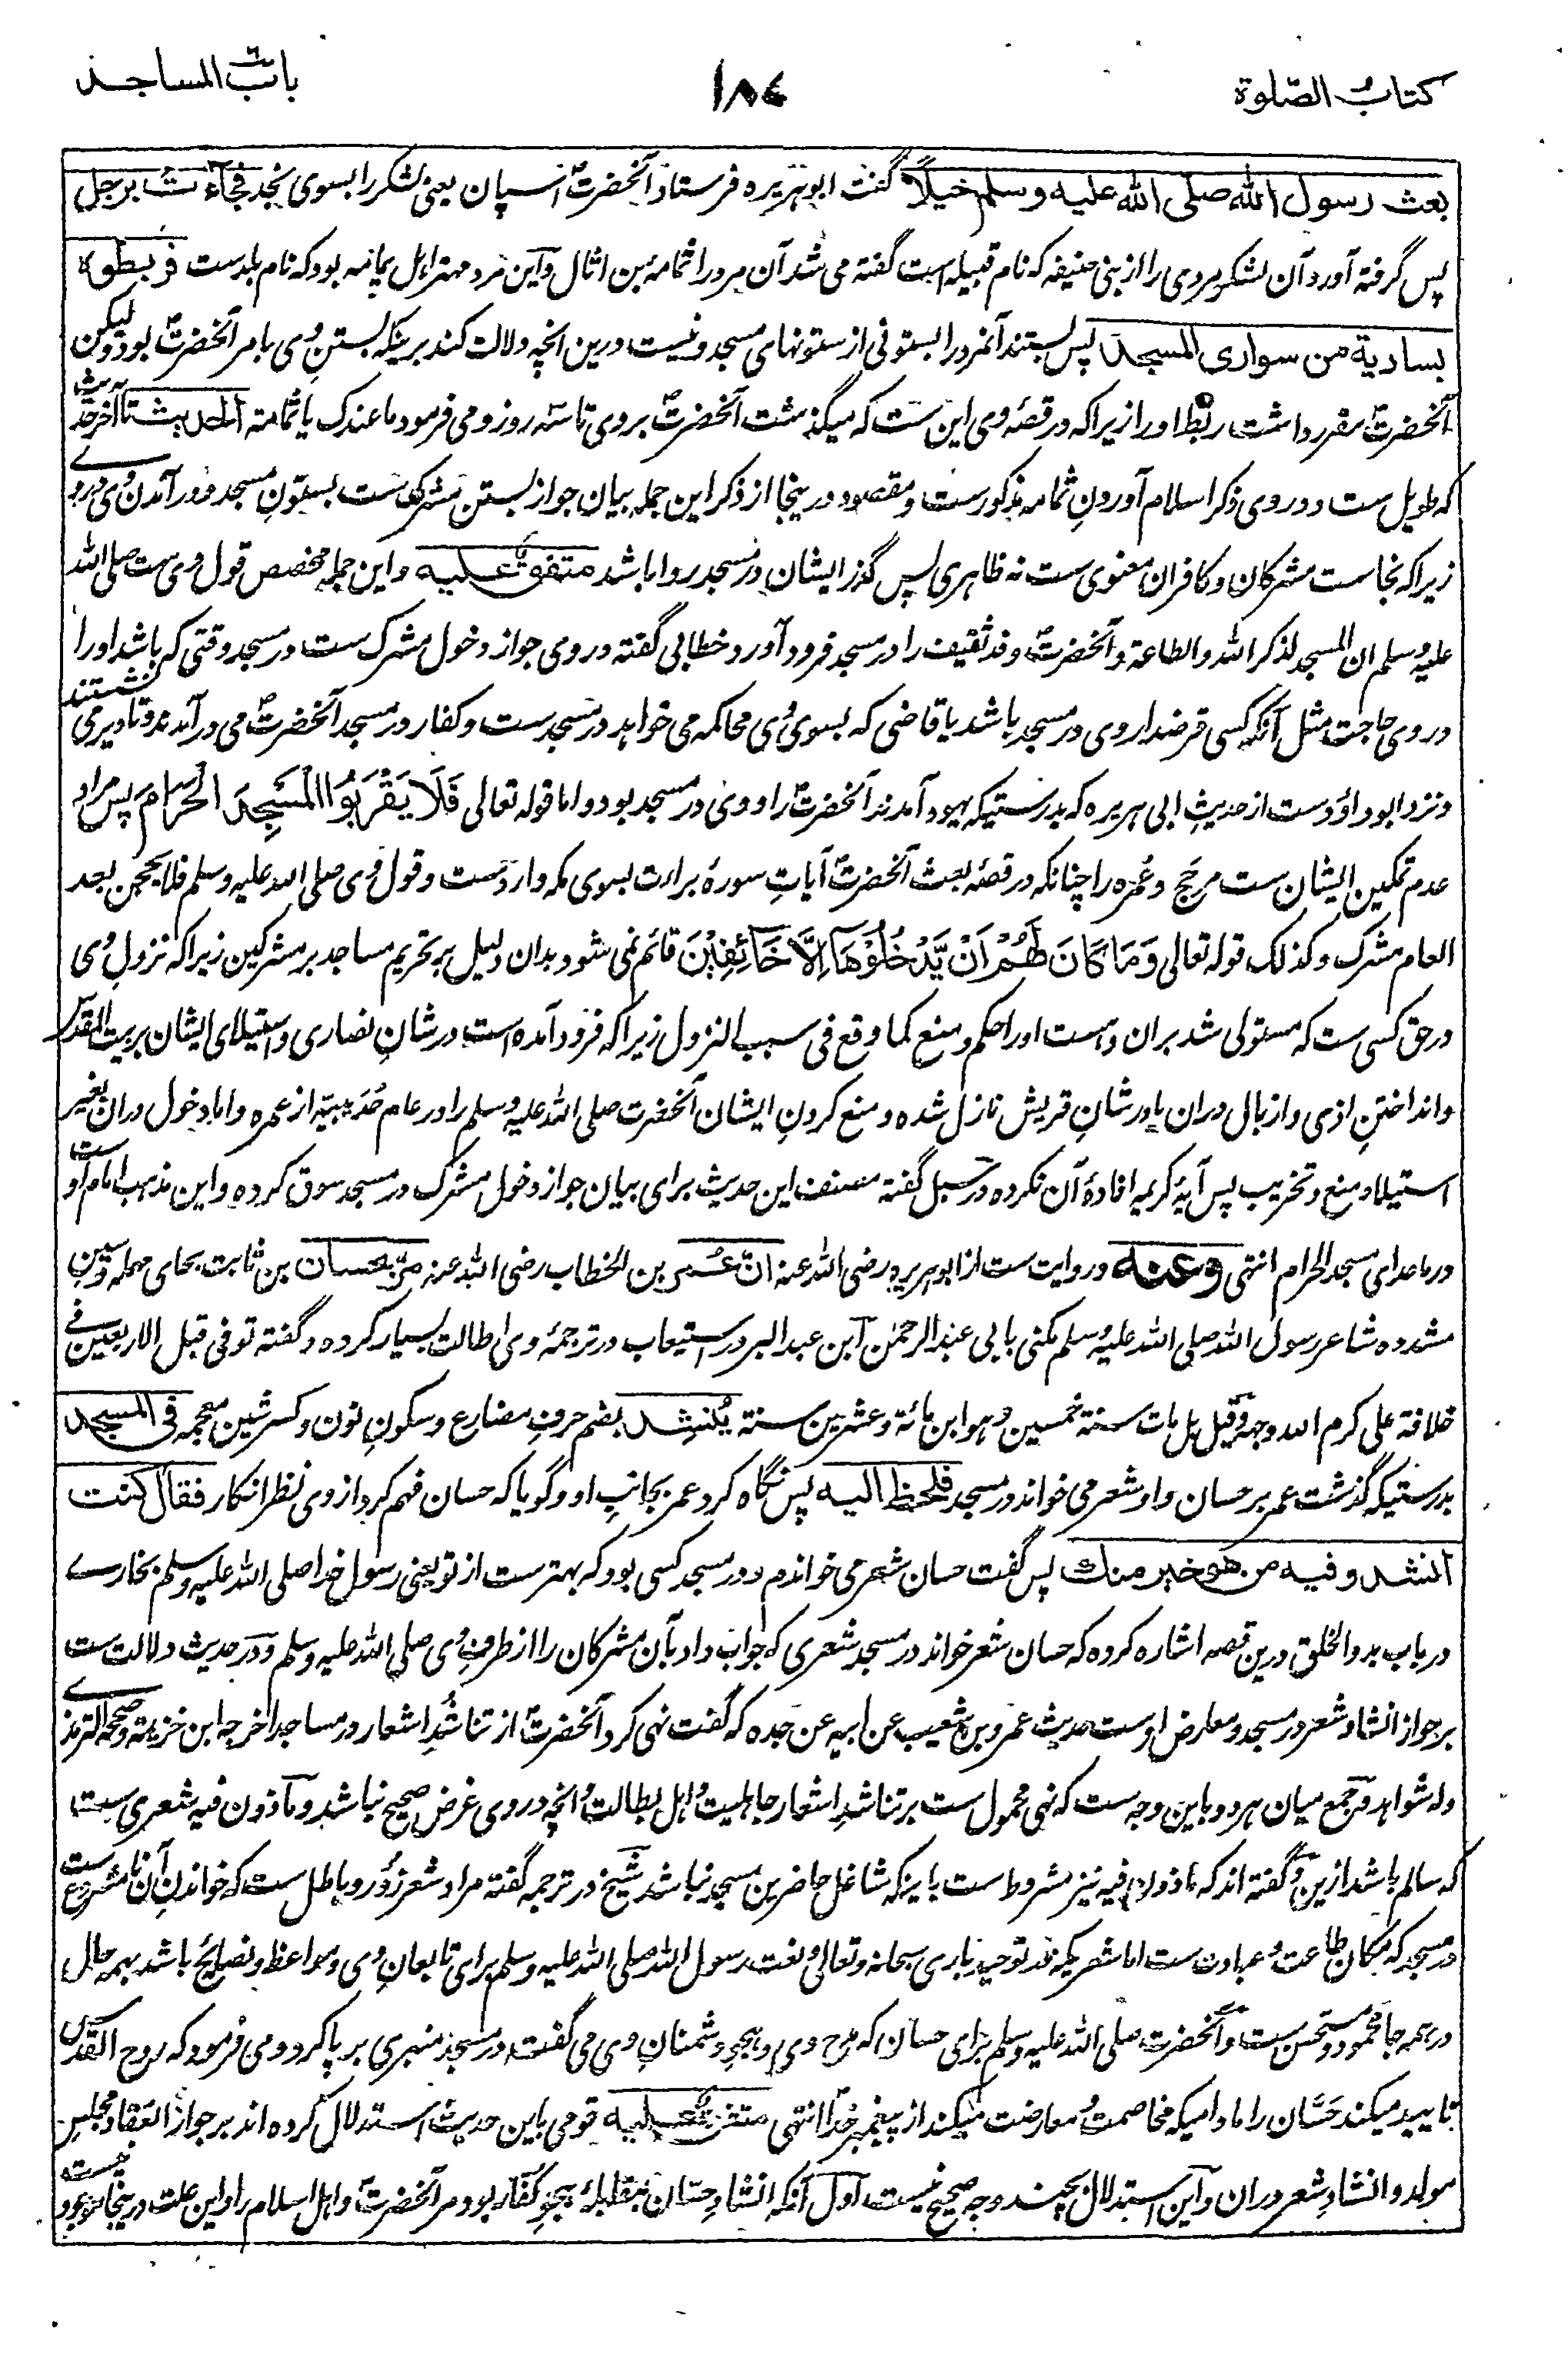 كتاب الصلوة
١٨٤
باب المساجد
بعث رسول الله صلى الله عليه وسلم خيلا گفت ابوهريره فرستاد آنحضرتؐ اسپان يعنی لشکر را بسوی نجد فجاءت برجل
پس گرفته آورد آن لشکر مردی را از بنی حنیفه که نام قبیله است گفته می شد آن مرد را ثمامه بن اثال و این مرد مهتر اهل یمامه بود که نام بلدست فربطوه
بسارية من سواری المسجد پس بستند آنمرد را بستونی از ستونهای مسجد و نیست درین انچه دلالت کند برینکه بستن وی بامر آنحضرتؐ بود ولیکن
آنحضرتؐ مقرر داشت ربط او را زیراکه در قصهٔ وی این ست که میگذشت آنحضرتؐ بروی تا سه روز و می فرمود ما عندک یا ثمامة الحديث تا آخر حدیث
که طویل ست و در وی ذکر اسلام آوردنِ ثمامه مذکورست و مقصود درینجا از ذکر این جمله بیان جواز بستن مشرک ست بستونِ مسجد و در آمدن وی در وے
زیراکه نجاست مشرکان و کافران معنوی ست نه ظاهری پس گذر ایشان در مسجد روا باشد متفق علیه و این جمله مخصص قول وی ست صلی الله
علیه وسلم ان المسجد لذکر الله والطاعة و آنحضرتؐ وفد ثقیف را در مسجد فرود آورد خطابی گفته در وی جواز دخول مشرک ست در مسجد وقتی که باشد او را
در وی حاجت مثل آنکه کسی قرضدار وی در مسجد باشد یا قاضی که بسوی وی محاکمه می خواهد در مسجد ست و کفار در مسجد آنحضرتؐ می در آمدند و تا دیر می نشستند
و نزد ابوداؤدست از حدیثِ ابی هریره که بدرستیکه یهود آمدند آنحضرتؐ را و وی در مسجد بود و اما قوله تعالی فَلَا يَقْرَبُوا الْمَسْجِدَ الْحَرَامَ پس مراد
عدم تمکین ایشان ست مر حج و عُمره را چنانکه در قصهٔ بعث آنحضرتؐ آیاتِ سورهٔ براءت بسوی مکه واردست و قول وی صلی الله علیه وسلم فلا یحجن بعد
العام مشرک و کذلک قوله تعالی وَمَا كَانَ لَهُمْ اَنْ يَّدْخُلُوْهَا اِلَّا خَائِفِيْنَ قائم نمی شود بدان دلیل بر تحریم مساجد بر مشرکین زیراکه نزولِ وی
در حق کسی ست که مستولی شد بران و هست او را حکم و منع کما وقع فی سبب النزول زیراکه فرود آمده است در شانِ نصاری و استیلای ایشان بر بیت المقدس
و انداختنِ اذی و ازبال دران یا در شانِ قریش نازل شده و منع کردنِ ایشان آنحضرت صلی الله علیه وسلم را در عام حُدَیبیة از عمره و اما دخول دران بغیر
استیلا و منع و تخریب پس آیهٔ کریمه افادهٔ آن نکرده در سبل گفته مصنف این حدیث برای بیان جواز دخول مشرک در مسجد سوق کرده و این مذهب امام اوست
در ماعدای مسجد الحرام انتهی وعنه و روایت ست از ابوهریره رضی الله عنه انّ عُمَر بن الخطاب رضی الله عنه مرّ بحسان بن ثابت بحای مهمله و سین
مشدده شاعر رسول الله صلی الله علیه وسلم مکنی بابی عبدالرحمٰن ابن عبدالبر در استیعاب در ترجمهٔ وی اطالت بسیار کرده و گفته توفی قبل الاربعین فی
خلافة علی کرم الله وجهه و قیل بل مات سنة خمسین و هو ابن مائة و عشرین سنة يُنشِد بضم حرفِ مضارع و سکونِ نون و کسر شین معجمه فی المسجد
بدرستیکه گذشت عمر بر حسان و او شعر می خواند در مسجد فلحظ اليه پس نگاه کرد عمر بجانبِ او و گویا که حسان فهم کرد از وی نظر انکار فقال کنت
انشد و فيه من هو خير منك پس گفت حسان شعر می خواندم و در مسجد کسی بود که بهترست از تو یعنی رسول خدا صلی الله علیه وسلم بخارے
در باب بدء الخلق درین قصه اشاره کرده که حسان شعر خواند در مسجد شعری که جواب داد بآن مشرکان را از طرفِ وی صلی الله علیه وسلم و در حدیث دلالت ست
بر جواز انشادِ شعر در مسجد و معارض اوست حدیث عمرو بن شعیب عن ابیه عن جده که گفت نهی کرد آنحضرتؐ از تناشُدِ اشعار در مساجد اخرجه ابن خزیمة و صححه الترمذے
وله شواهد و جمع میان هر دو باین وجه ست که نهی محمول ست بر تناشدِ اشعار جاهلیت و اهل بطالت و انچه در وی غرض صحیح نباشد و مأذون فیه شعری ست
که سالم باشد ازین و گفته اند که ماذون فیه نیز مشروط ست باینکه شاغل حاضرین مسجد نباشد شیخ در ترجمه گفته مراد شعر زور و باطل ست که خواندنِ آن نامشروع ست
در مسجد که مکان طاعت و عبادت ست اما شعریکه در توحید باری سبحانه و تعالی و نعت رسول الله صلی الله علیه وسلم برای تابعانِ وی و مواعظ و نصایح باشد بهمه حال
در همه جا محمود و مستحسن ست و آنحضرت صلی الله علیه وسلم برای حسان که مدح وی و هجوِ دشمنانِ وی می گفت در مسجد منبری بر پا کرد و می فرمود که روح القدس
تایید میکند حَسَّان را مادامیکه مخاصمت و معارضت میکند از پیغمبر خدا انتهی متفق علیه قومی باین حدیث استدلال کرده اند بر جواز انعقاد مجلسِ
مولد و انشادِ شعر دران و این استدلال بچند وجه صحیح نیست اول آنکه انشادِ حسّان بمقابلهٔ هجوِ کفّار بود مر آنحضرتؐ و اهل اسلام را و این علت درینجا موجود نیست